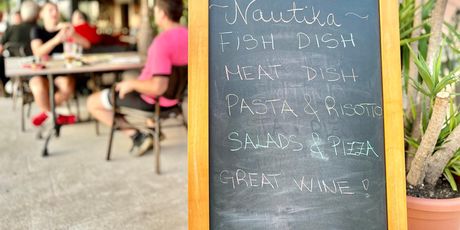 ~Nautika~
FISH DISH
MEAT DISH
PASTA & RISOTTO
SALADS & PIZZA
GREAT WINE!